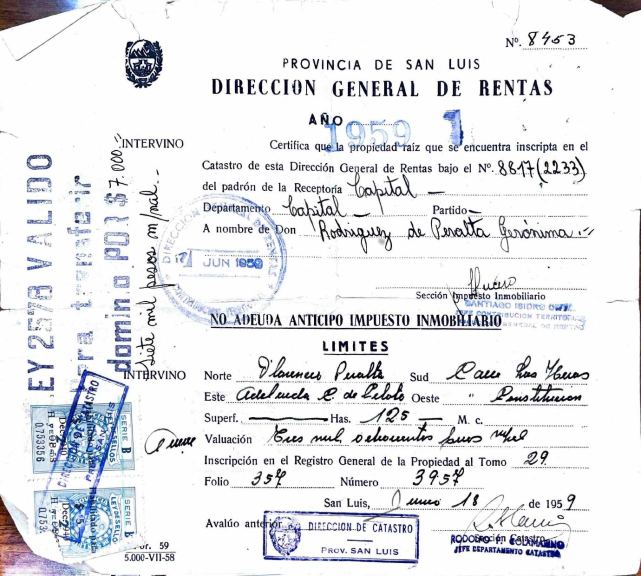 Nº. 8453
PROVINCIA DE SAN LUIS
DIRECCION GENERAL DE RENTAS
AÑO 1959 1
INTERVINO
Certifica que la propiedad raíz que se encuentra inscripta en el
Catastro de esta Dirección General de Rentas bajo el Nº. 8817(2233)
del padrón de la Receptoría Capital
Departamento Capital Partido
A nombre de Don Rodriguez de Peralta Gerónima
17 JUN 1959
Lucero
Sección Impuesto Inmobiliario
SANTIAGO ISIDRO
JEFE CONTRIBUCION TERRITORIAL
GENERAL DE RENTAS
NO ADEUDA ANTICIPO IMPUESTO INMOBILIARIO
LIMITES
INTERVINO
Norte Peralta Sud Calle Las Heras
Este Adelaida C de Oeste " Constitucion
Superf. Has. 125 M. c.
Valuación Tres mil ochocientos pesos m/nal
Inscripción en el Registro General de la Propiedad al Tomo 29
Folio 357 Número 3957
San Luis, Junio 18 de 1959
Avalúo anterior
DIRECCION DE CATASTRO
PROV. SAN LUIS
Sección Catastro
RODOLFO
JEFE DEPARTAMENTO CATASTRO
59
5.000-VII-58
LEY 2578 VALIDO
para transferir
dominio POR $ 7.000
Siete mil pesos m/nal.
SERIE B
LEY DE SELLOS
0753356
SERIE B
LEY DE SELLOS
DIRECCION DE CATASTRO